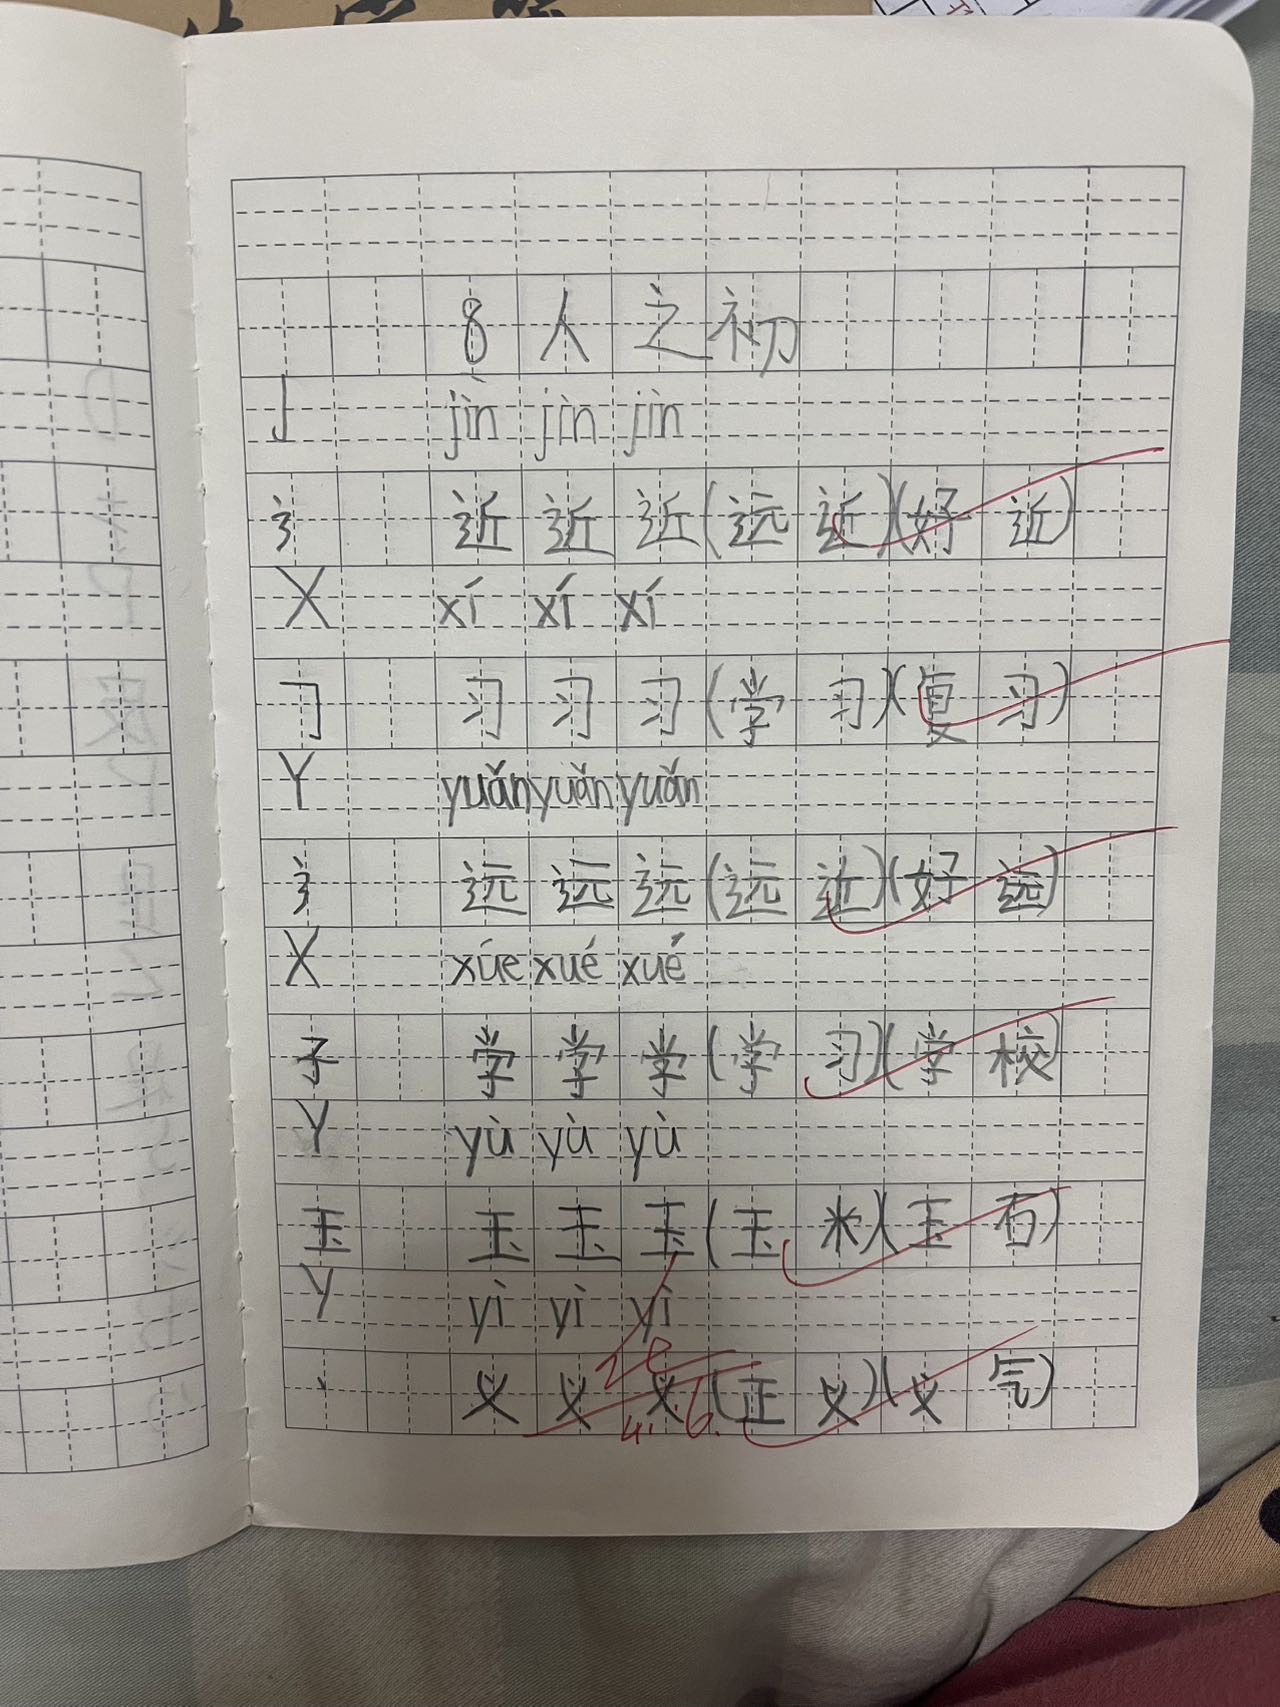 8 人之初
J jìn jìn jìn
辶 近 近 近 (远近)(好近)
X xí xí xí
㇆ 习 习 习 (学习)(复习)
Y yuǎn yuǎn yuǎn
辶 远 远 远 (远近)(好远)
X xúe xué xué
子 学 学 学 (学习)(学校)
Y yù yù yù
玉 玉 玉 玉 (玉米)(玉石)
Y yì yì yì
丶 义 义 义 (正义)(义气)
4.6.